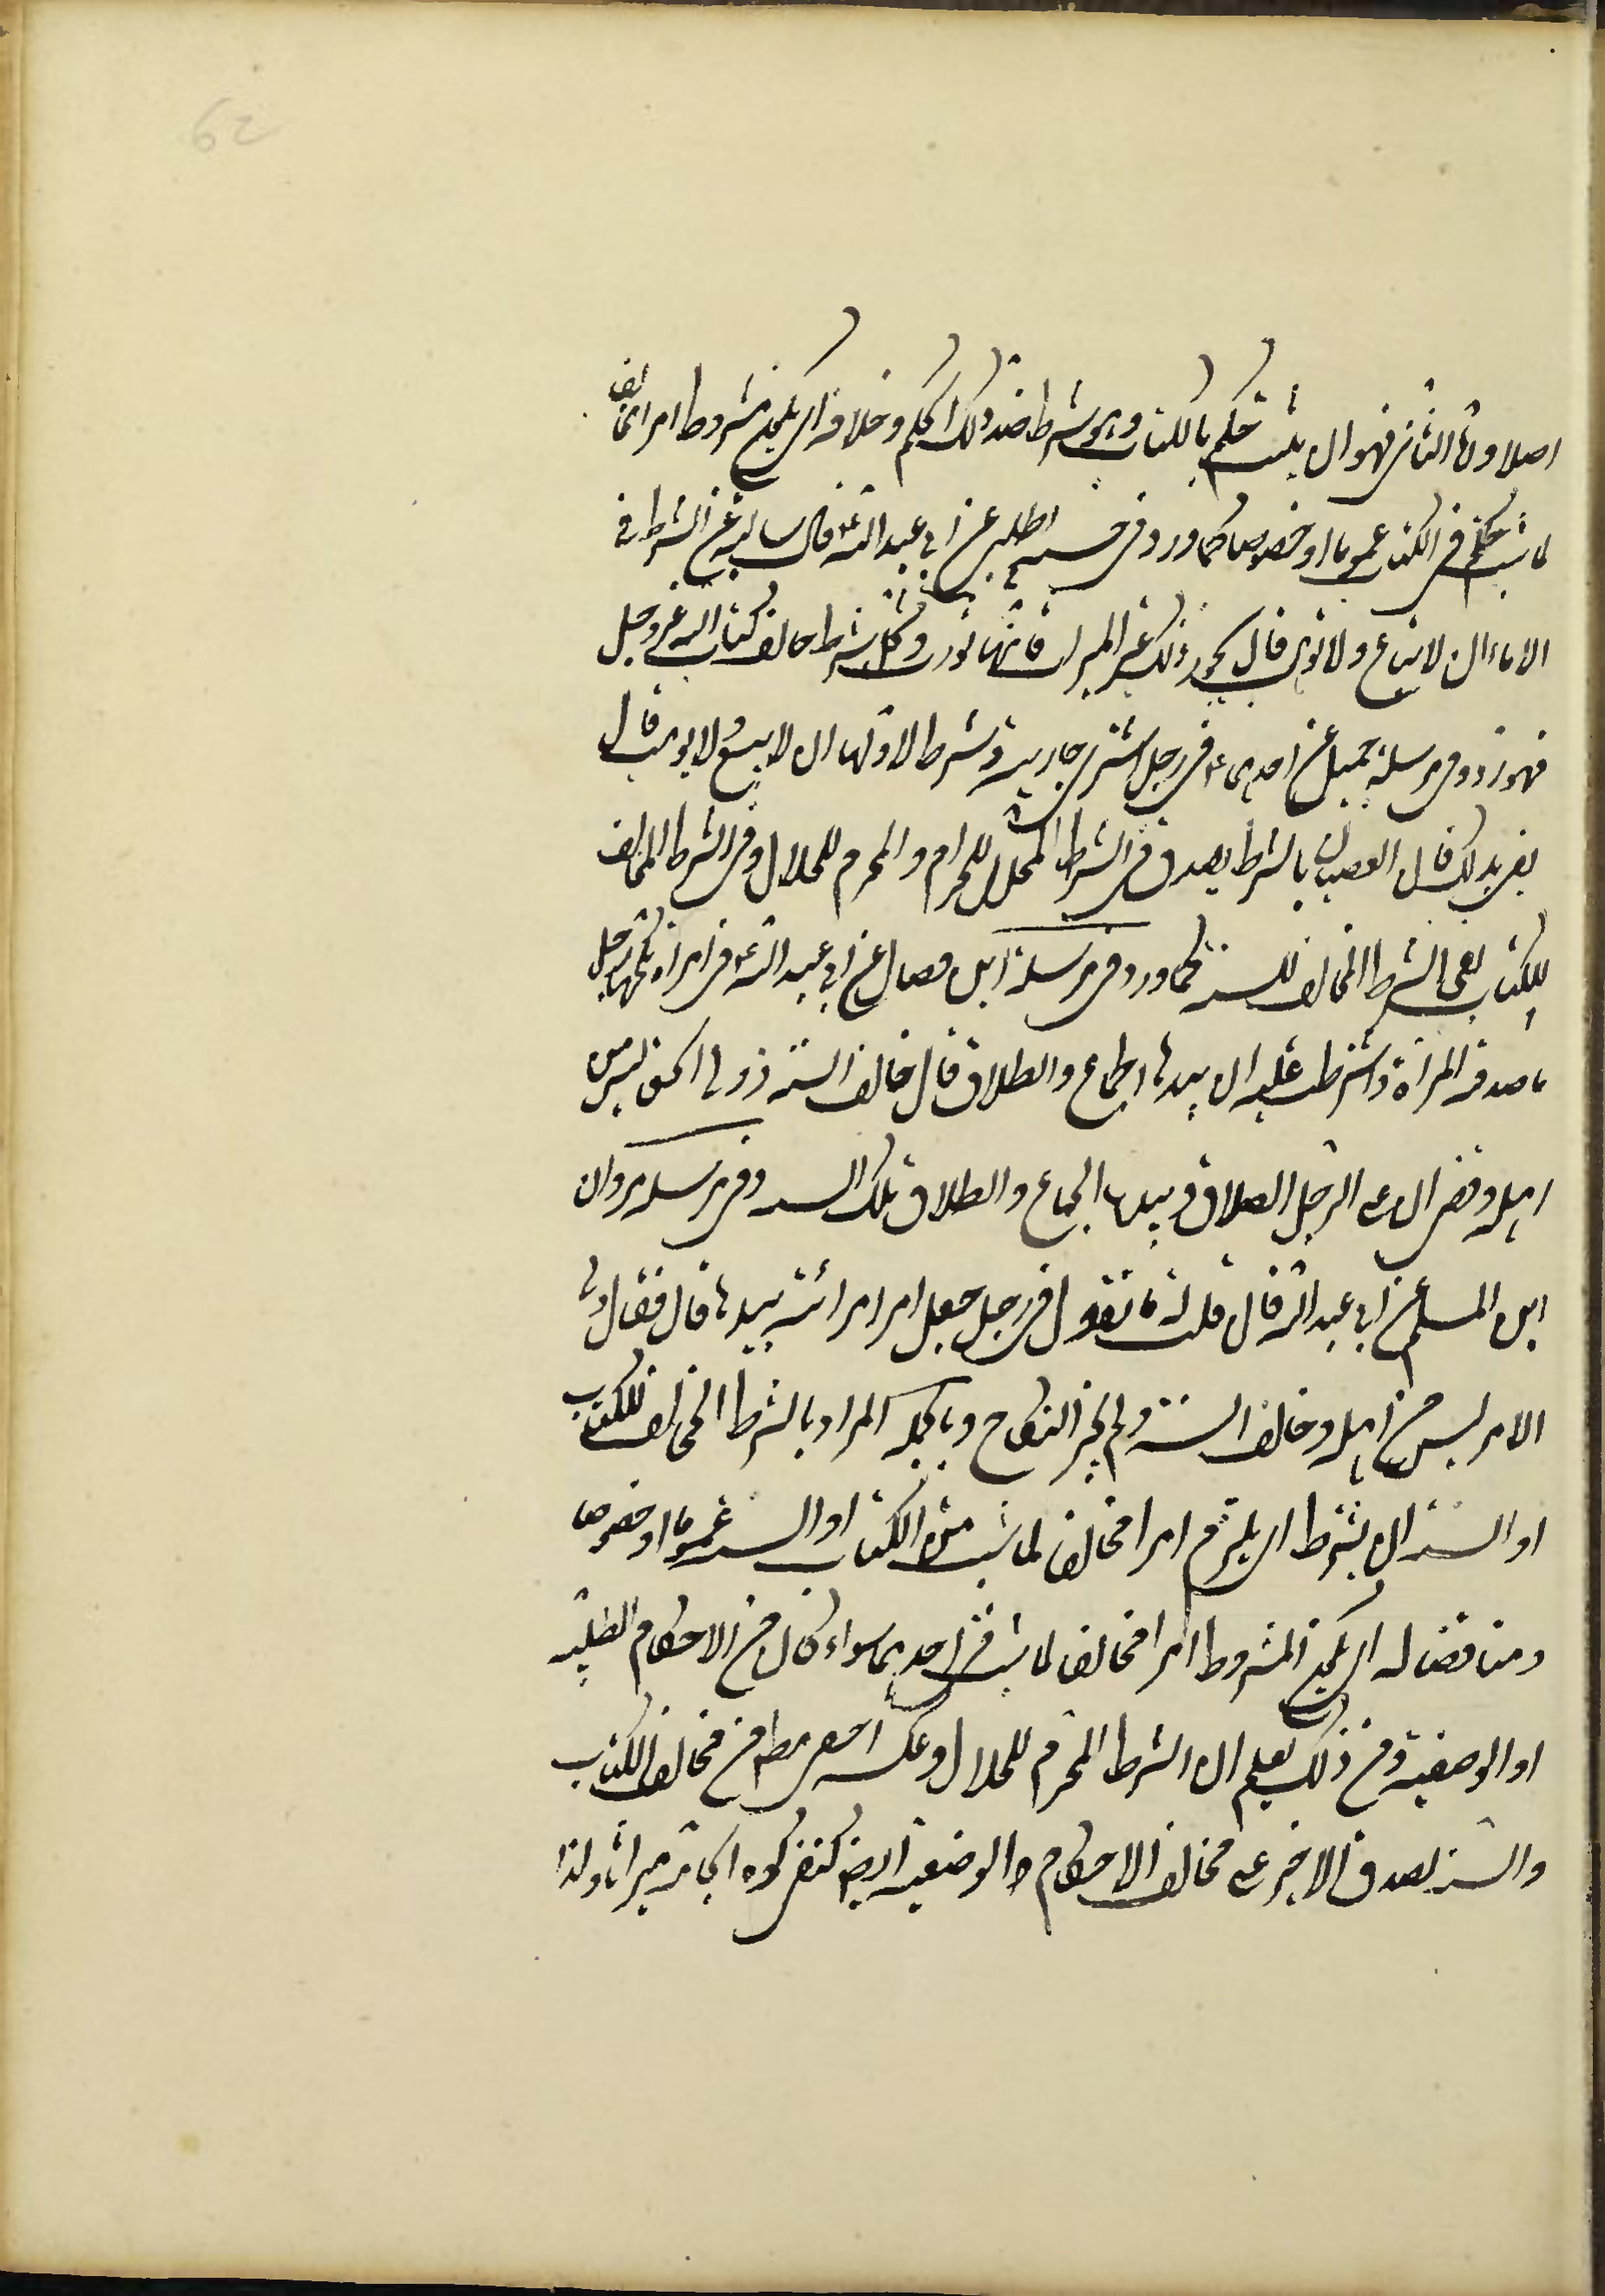 62
اصلا واما الثانی فهو ان یثبت حکم بالکتاب وهو یشترط ضد ذلک الحکم وخلافه ای یکون المشروط امرا یخالف
لما ثبت حکمه فی الکتاب عموما او خصوصا کما ورد فی حسنة الحلبی عن ابی عبد الله ع قال سالته عن الشرط فی
الاماء ان لا تباع ولا توهب قال یجوز ذلک غیر المیراث فانها تورث وکل شرط خالف کتاب الله عز وجل
فهو رد وفی مرسلة جمیل عن احدهما ع فی رجل اشتری جاریة وشرط لاهلها ان لا یبیع ولا یوهب قال
یفی بذلک قال بالشرط یصدق فی الشرط المحلل للحرام والمحرم للحلال وفی الشرط المخالف
للکتاب بقی الشرط المخالف للسنة کما ورد فی مرسلة ابن فضال عن ابی عبد الله ع فی امراة نکحها رجل
فاصدقه المراة واشترطت علیه ان بیدها الجماع والطلاق قال خالف السنة وولی الحق لیس من
اهله وقضی ان علی الرجل الصداق وبیده الجماع والطلاق تلک السنة وفی مرسلة مروان
ابن المسلم عن ابی عبد الله قال قلت له ما تقول فی رجل جعل امر امراته بیدها قال فقال ولی
الامر لیس من اهله وخالف السنة ولم یجز النکاح وبالجملة المراد بالشرط المخالف للکتاب
او السنة ان یشترط ای یلتزم امرا مخالفا لما ثبت من الکتاب او السنة عموما او خصوصا
ومناقضا له ای یکون المشروط امرا مخالفا لما ثبت فی احدیهما سواء کان من الاحکام الطلبیة
او الوضعیة ومن ذلک یعلم ان الشرط المحرم للحلال وعکسه اخص مطلقا من مخالف الکتاب
والسنة لصدق الاخیر علی مخالف الاحکام الوضعیة ایضا کنفی کون ترکة میراثا ولذا